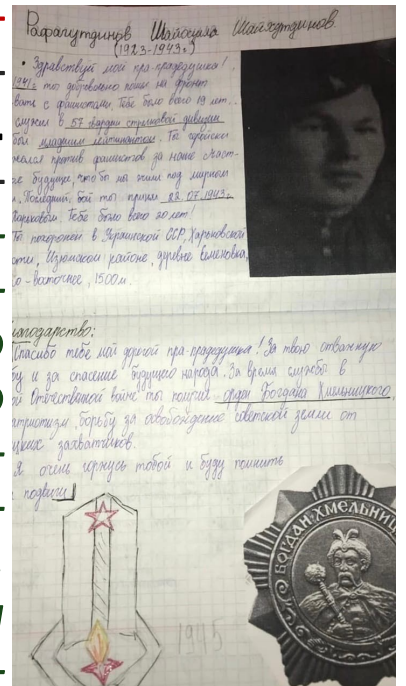 Рафагутдинов Шайхулла Шайхутдинов
(1923-1943г.)
• Здравствуй мой пра-прадедушка!
1941г то добровольно пошел на фронт
вать с фашистами. Тебе было всего 19 лет..
служил в 57 гвардии стрелковой дивизии
был младшим лейтенантом. Ты геройски
жался против фашистов за наше счаст-
е будущее, чтобы мы жили под мирным
м. Последний бой ты принял 22.07.1943г.
Харьковом. Тебе было всего 20 лет!
Ты похоронен в Украинской ССР, Харьковской
сти, Изюмском районе, деревне Семеновка,
о-восточнее, 1500м.
лагодарство:
Спасибо тебе мой дорогой пра-прадедушка! За твою отважную
бу и за спасение будущего народа. За время службы в
ой Отечественной войне ты получил орден Богдана Хмельницкого,
атриотизм, борьбу за освобождение советской земли от
цких захватчиков.
Я очень горжусь тобой и буду помнить
подвиги!
1945
БОГДАН ХМЕЛЬНИЦ